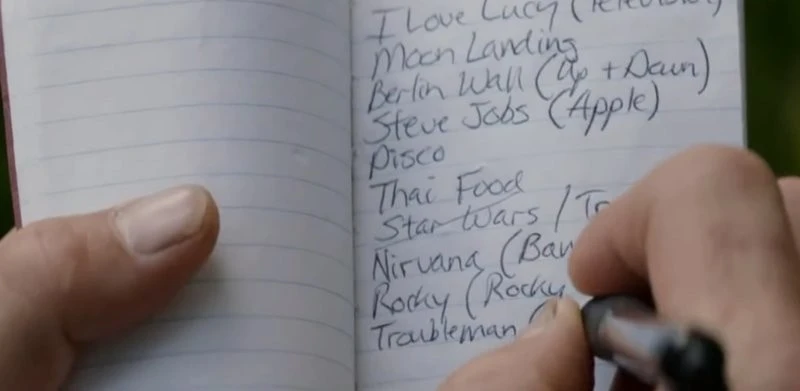 I Love Lucy (Television)
Moon Landing
Berlin Wall (Up + Down)
Steve Jobs (Apple)
Disco
Thai Food
Star Wars / Tr
Nirvana (Ban
Rocky (Rocky
Troubleman (